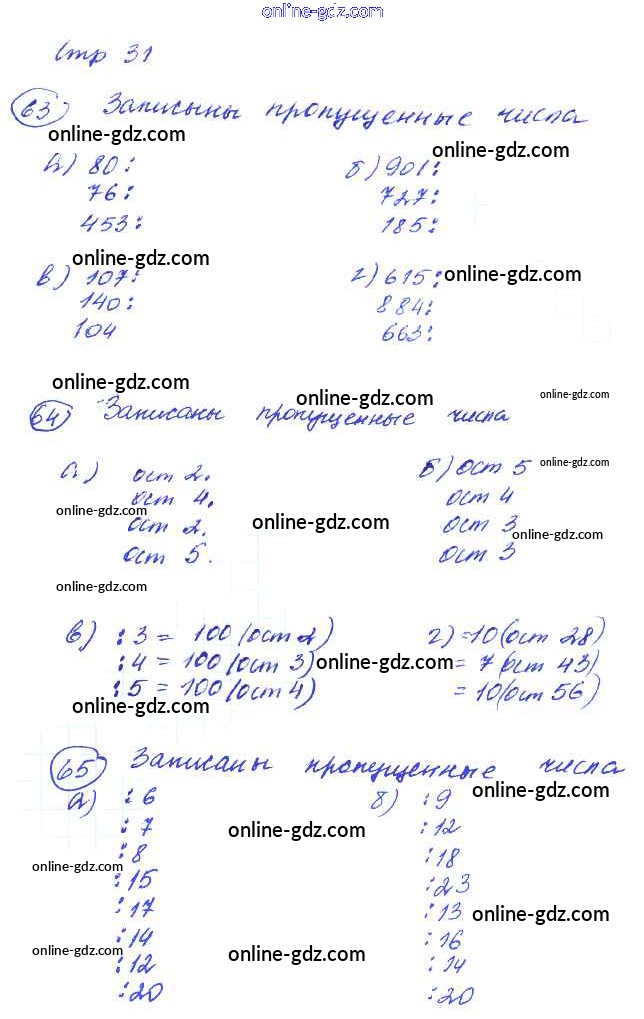 online-gdz.com
Стр 31
63) Записыны пропущенные числа
online-gdz.com online-gdz.com
а) 80: б) 901:
76: 727:
453: 185:
online-gdz.com
в) 107: г) 615: online-gdz.com
140: 884:
104 663:
online-gdz.com online-gdz.com online-gdz.com
64) Записаны пропущенные числа
а) ост 2. б) ост 5 online-gdz.com
ост 4. ост 4
online-gdz.com online-gdz.com
ост 2. ост 3 online-gdz.com
ост 5. ост 3
online-gdz.com
в) :3 = 100 (ост 2) г) =10 (ост 28)
:4 = 100 (ост 3) online-gdz.com = 7 (ост 43)
:5 = 100 (ост 4) = 10 (ост 56)
online-gdz.com
65) Записаны пропущенные числа
online-gdz.com
а) :6 б) :9
:7 online-gdz.com :12
:8 :18
online-gdz.com
:15 :23
:17 :13 online-gdz.com
:14 :16
online-gdz.com online-gdz.com
:12 :14
:20 :20